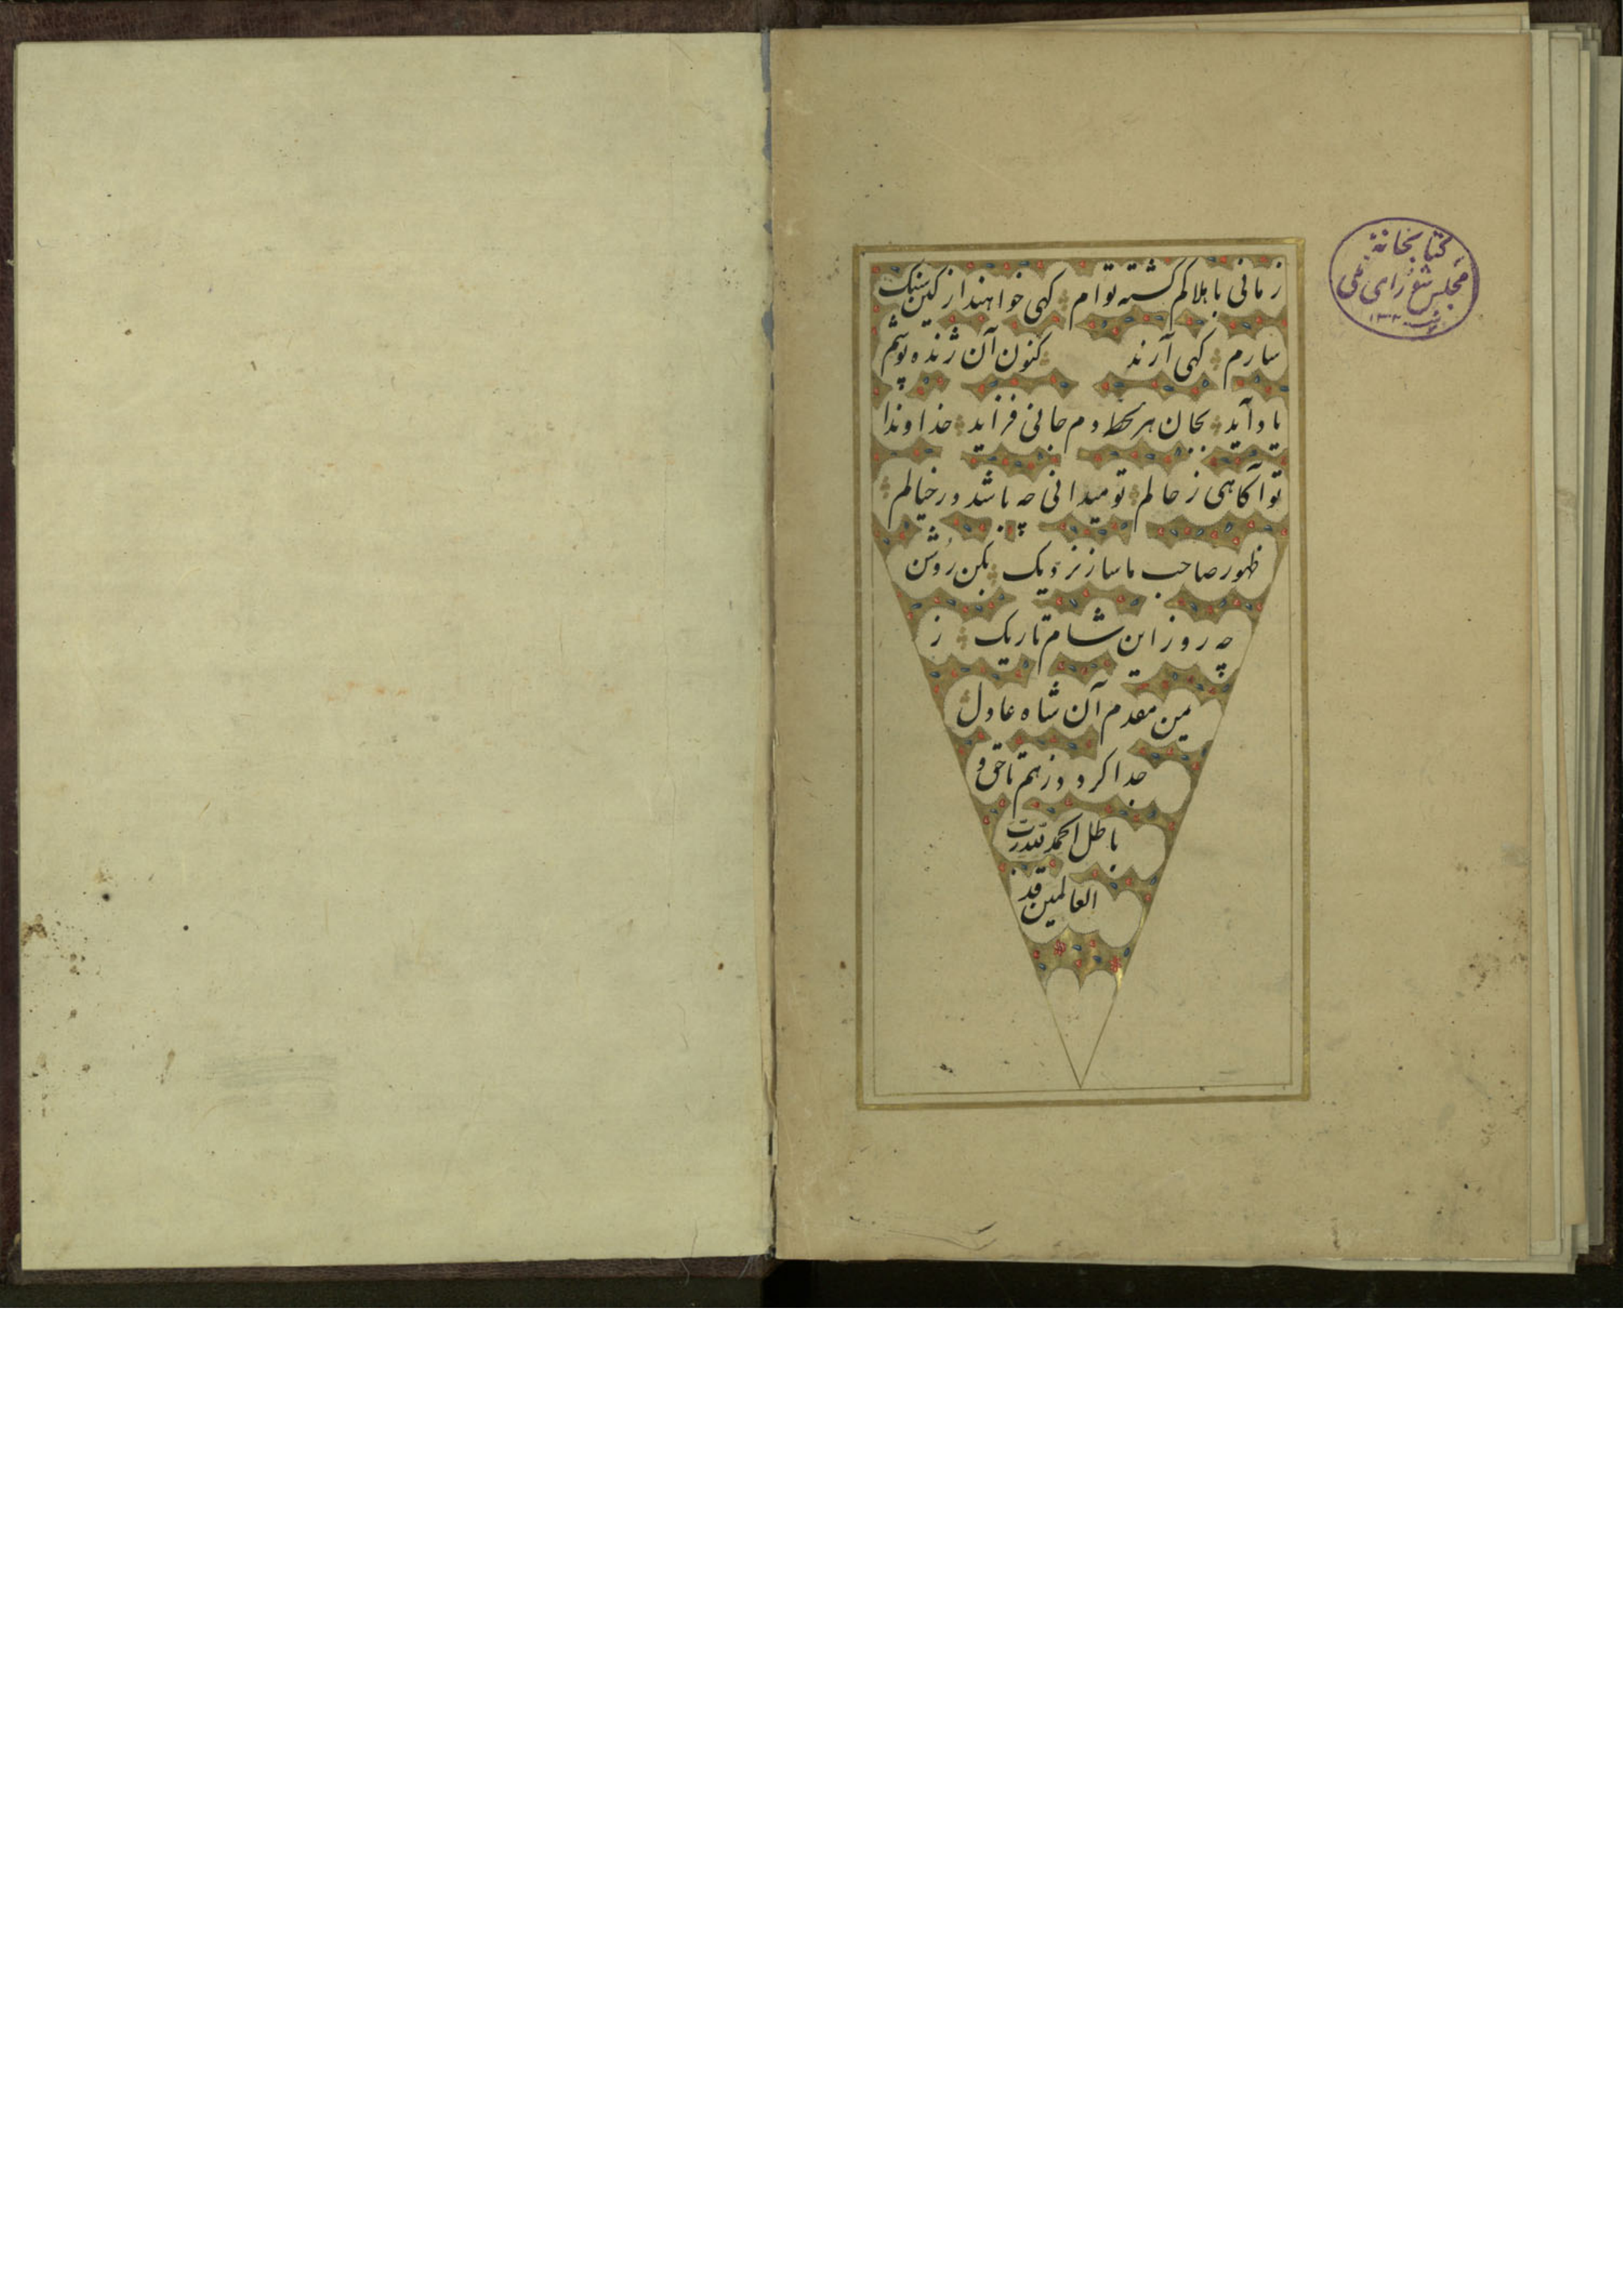 زمانی با هلاکم گشته توام کهی خواهند از کین سنک
سارم کهی آرند کنون آن ژنده پوشم
یاد آید بجان هر لحظه دم جانی فزاید خداوندا
تو آکاهی ز حالم تو میدانی چه باشد در خیالم
ظهور صاحب ما ساز نزدیک بکن روشن
چه روز این شام تاریک ز
یمن مقدم آن شاه عادل
جدا کردد ز هم تا حق و
باطل الحمد لله رب
العالمین
کتابخانهٔ
مجلس شورای ملی